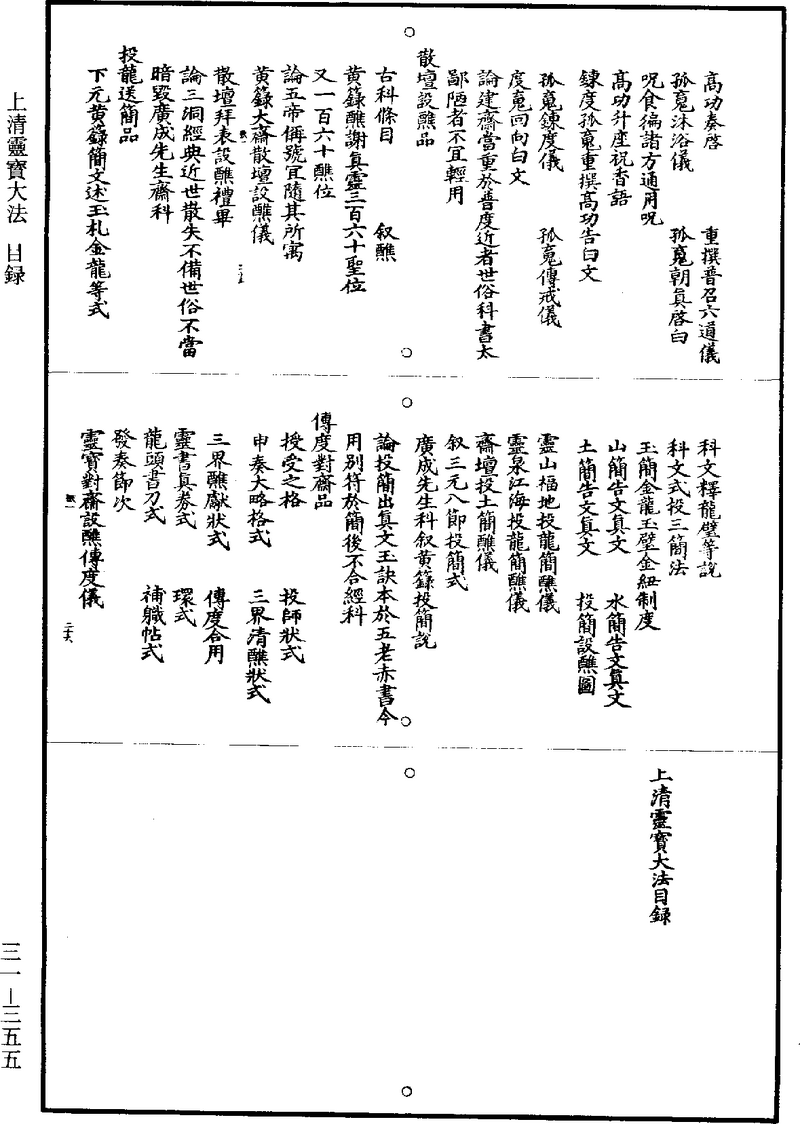 上清靈寶大法　目録
高功奏啓　重撰普召六道儀
孤䰟沐浴儀　孤䰟朝眞啓白
呪食徧諸方通用呪
高功升座祝香語
鍊度孤䰟重撰高功告白文
孤䰟鍊度儀　孤䰟傳戒儀
度䰟回向白文
論建齋當重於普度近者世俗科書太
鄙陋者不宜輕用
散壇設醮品
古科條目　叙醮
黃籙醮謝眞靈三百六十聖位
又一百六十醮位
論五帝稱號宜隨其所寓
黃籙大齋散壇設醮儀
散壇拜表設醮禮畢
論三洞經典近世散失不備世俗不當
暗毀廣成先生齋科
投龍送簡品
下元黃籙簡文述玉札金龍等式
科文釋龍璧等說
科文式投三簡法
玉簡金龍玉璧金紐制度
山簡告文眞文　水簡告文眞文
土簡告文眞文　投簡設醮圖
靈山福地投龍簡醮儀
靈泉江海投龍簡醮儀
齋壇投土簡醮儀
叙三元八節投簡式
廣成先生科叙黃籙投簡說
論投簡出眞文玉訣本於五老赤書今
用別符於簡後不合經科
傳度對齋品
授受之格　投師狀式
申奏大略格式　三界清醮狀式
三界醮獻狀式　傳度合用
靈書真券式　環式
龍頭書刀式　補職帖式
發奏節次
靈寶對齋設醮傳度儀
上清靈寶大法目録
三一—三五五